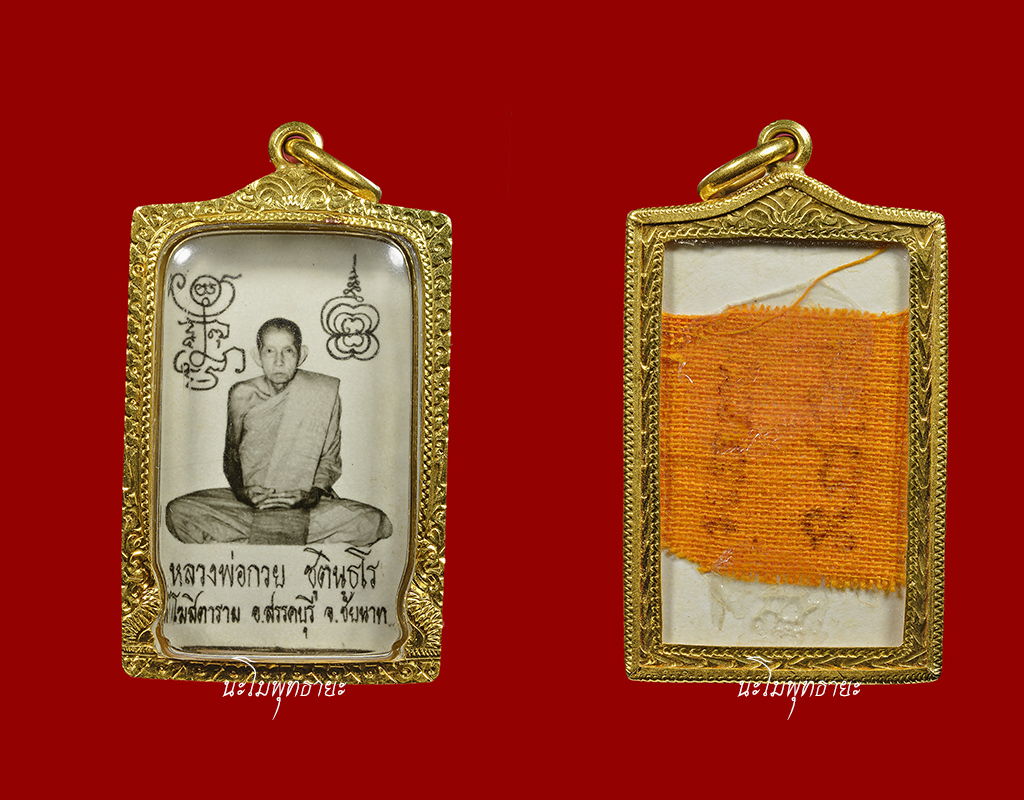 หลวงพ่อกวย ชุตินฺธโร
โฆสิตาราม อ.สรรคบุรี จ.ชัยนาท
นะโมพุทธายะ
นะโมพุทธายะ